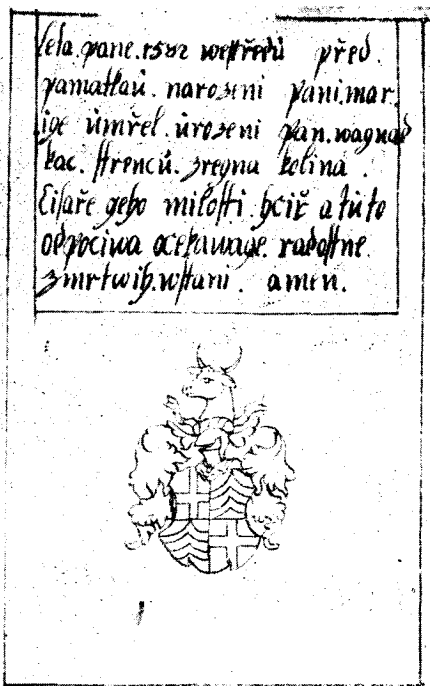 leta.pane.1582 westředu před.
pamatkau. narozeni pani.mar.
ige úmřel. úrozeni pan.
kac. zregna kolina.
Cisaře geho milosti. a túto
odpociwa ocekawage. radostne.
zmrtwih.wstani. amen.